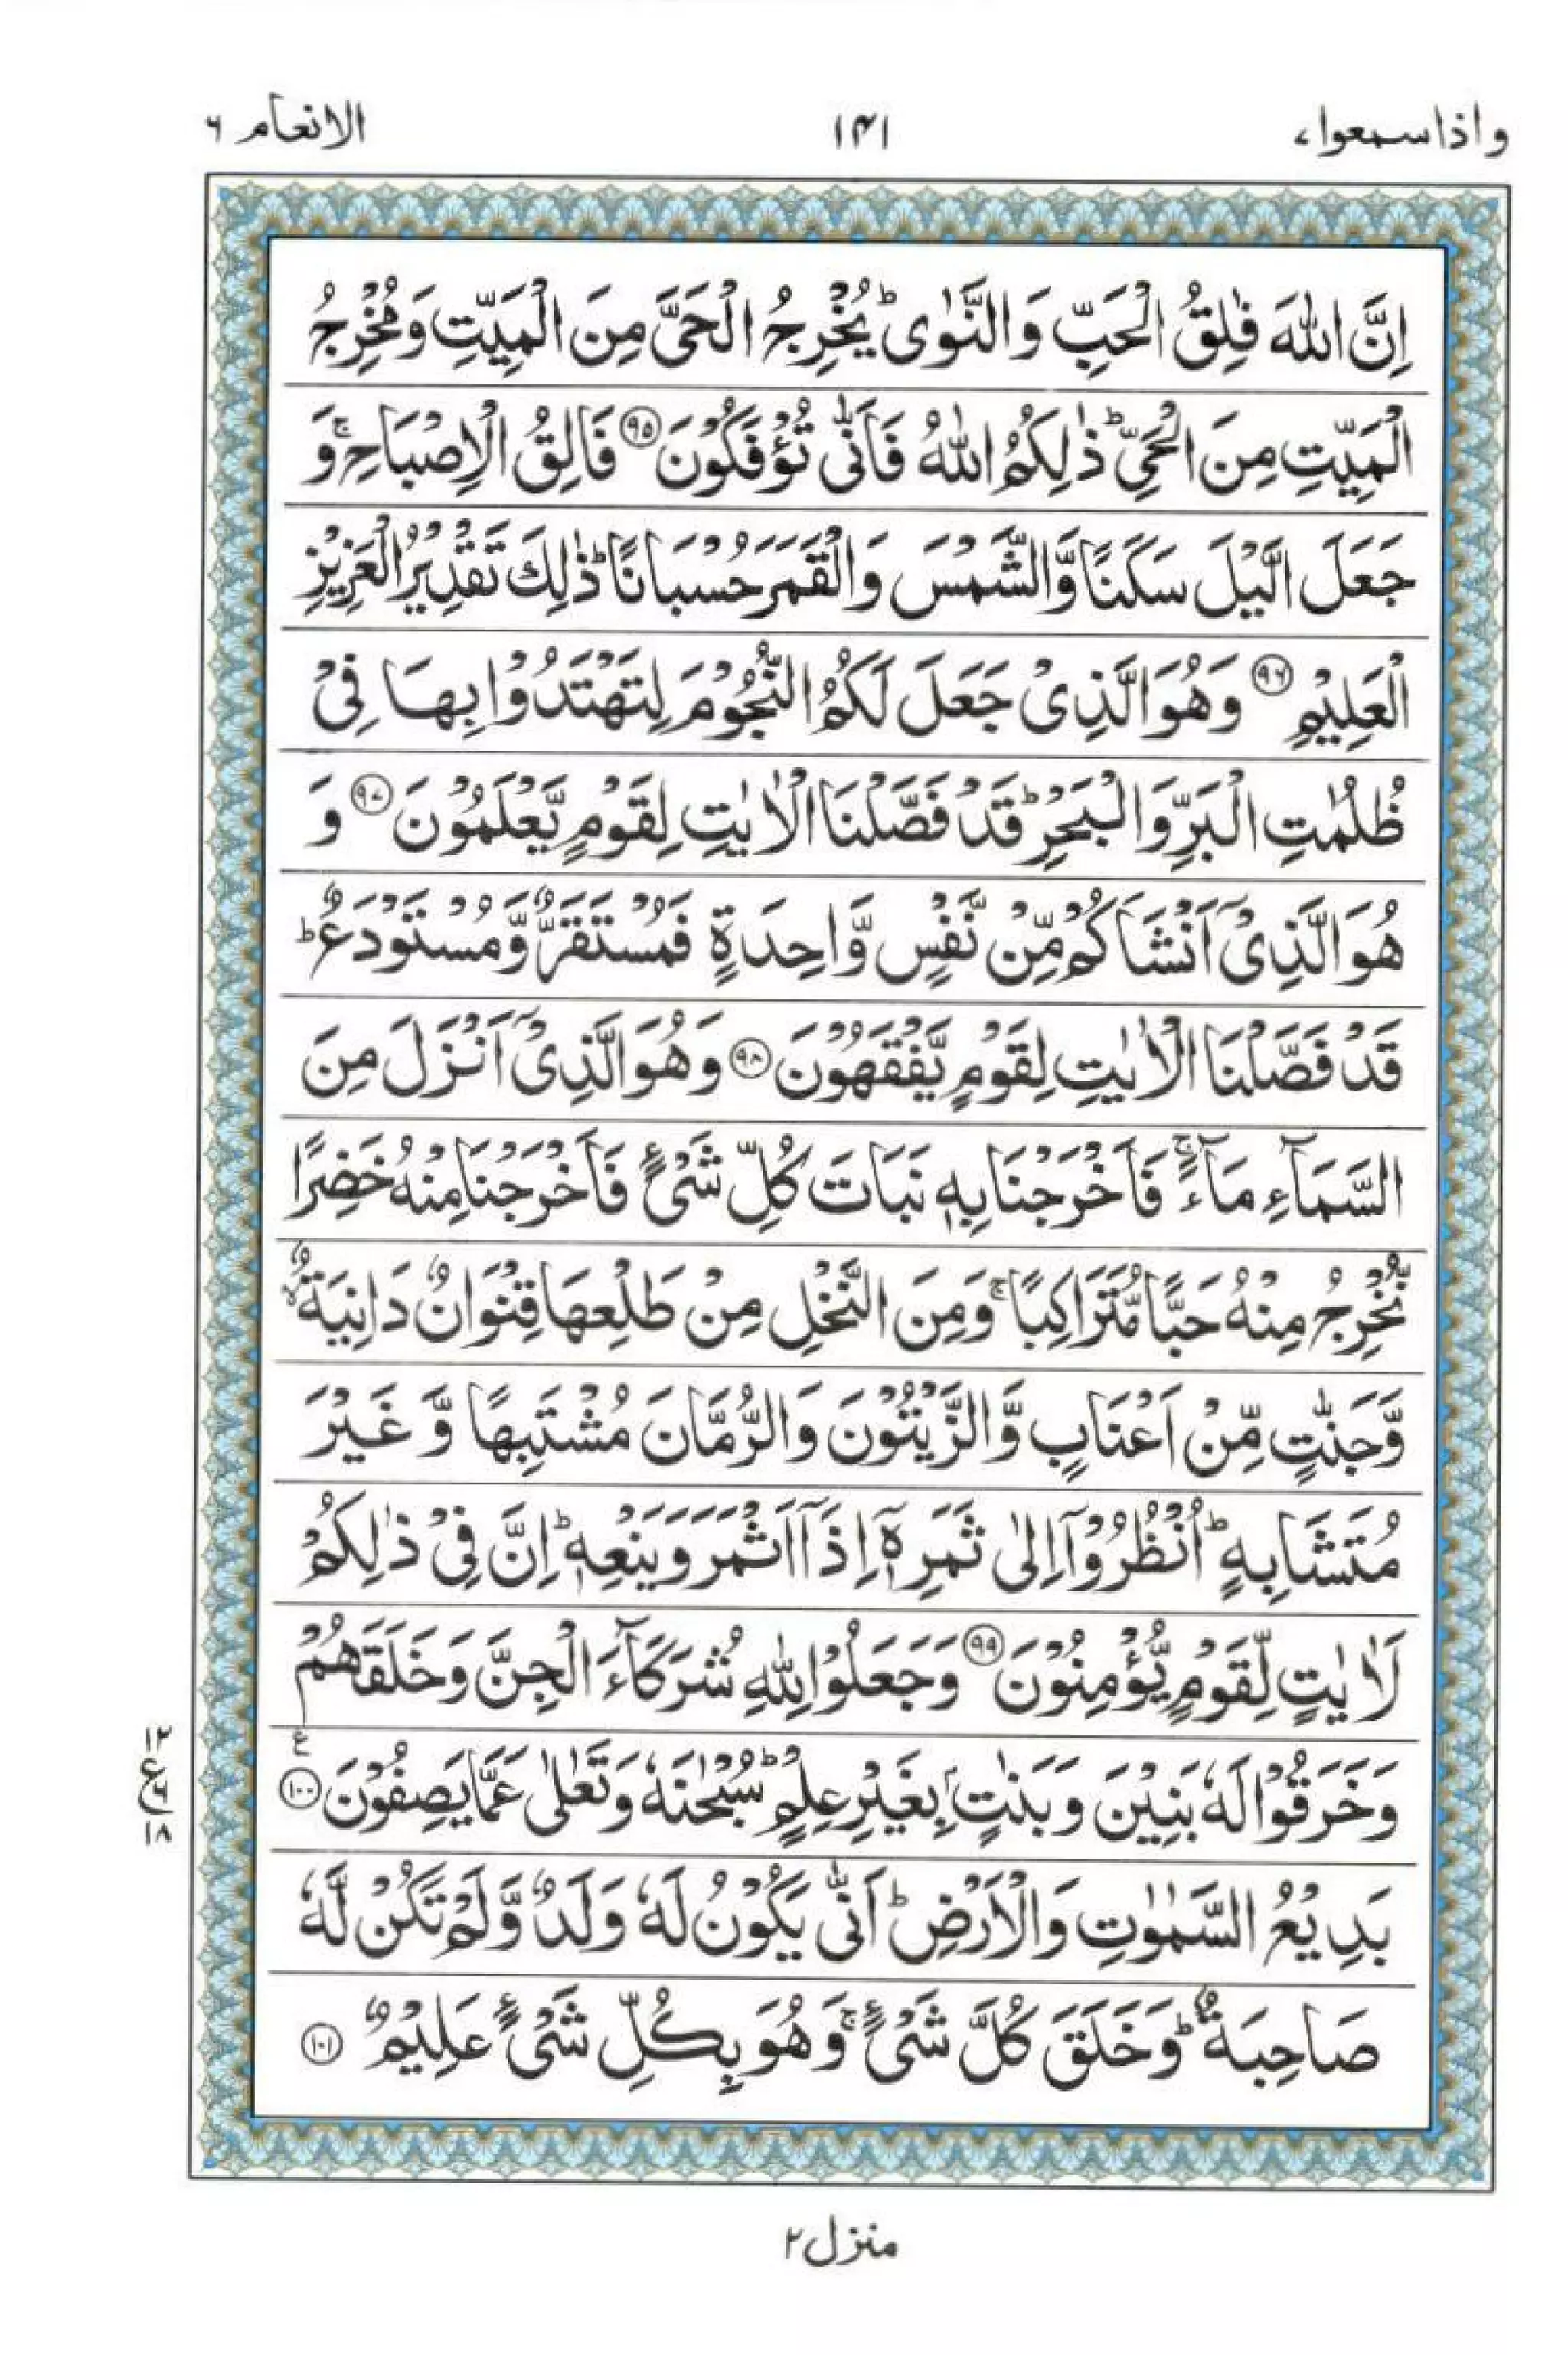 واذاسمعوا ۷
۱۴۱
الانعام ۶
اِنَّ اللّٰهَ فٰلِقُ الْحَبِّ وَالنَّوٰىؕ يُخْرِجُ الْحَىَّ مِنَ الْمَيِّتِ وَمُخْرِجُ
الْمَيِّتِ مِنَ الْحَىِّؕ ذٰلِكُمُ اللّٰهُ فَاَنّٰى تُؤْفَكُوْنَ ۹۵ فَالِقُ الْاِصْبَاحِۚ وَ
جَعَلَ الَّيْلَ سَكَنًا وَّالشَّمْسَ وَالْقَمَرَ حُسْبَانًاؕ ذٰلِكَ تَقْدِيْرُ الْعَزِيْزِ
الْعَلِيْمِ ۹۶ وَهُوَ الَّذِىْ جَعَلَ لَكُمُ النُّجُوْمَ لِتَهْتَدُوْا بِهَا فِىْ
ظُلُمٰتِ الْبَرِّ وَالْبَحْرِؕ قَدْ فَصَّلْنَا الْاٰيٰتِ لِقَوْمٍ يَّعْلَمُوْنَ ۹۷ وَ
هُوَ الَّذِىْۤ اَنْشَاَكُمْ مِّنْ نَّفْسٍ وَّاحِدَةٍ فَمُسْتَقَرٌّ وَّمُسْتَوْدَعٌؕ
قَدْ فَصَّلْنَا الْاٰيٰتِ لِقَوْمٍ يَّفْقَهُوْنَ ۹۸ وَهُوَ الَّذِىْۤ اَنْزَلَ مِنَ
السَّمَآءِ مَآءًۚ فَاَخْرَجْنَا بِهٖ نَبَاتَ كُلِّ شَىْءٍ فَاَخْرَجْنَا مِنْهُ خَضِرًا
نُّخْرِجُ مِنْهُ حَبًّا مُّتَرَاكِبًاۚ وَمِنَ النَّخْلِ مِنْ طَلْعِهَا قِنْوَانٌ دَانِيَةٌۙ
وَّجَنّٰتٍ مِّنْ اَعْنَابٍ وَّالزَّيْتُوْنَ وَالرُّمَّانَ مُشْتَبِهًا وَّغَيْرَ
مُتَشَابِهٍؕ اُنْظُرُوْۤا اِلٰى ثَمَرِهٖۤ اِذَاۤ اَثْمَرَ وَيَنْعِهٖؕ اِنَّ فِىْ ذٰلِكُمْ
لَاٰيٰتٍ لِّقَوْمٍ يُّؤْمِنُوْنَ ۹۹ وَجَعَلُوْا لِلّٰهِ شُرَكَآءَ الْجِنَّ وَخَلَقَهُمْ
وَخَرَقُوْا لَهٗ بَنِيْنَ وَبَنٰتٍۭ بِغَيْرِ عِلْمٍؕ سُبْحٰنَهٗ وَتَعٰلٰى عَمَّا يَصِفُوْنَ ۱۰۰ ع
۱۲
ع ۶
۱۸
بَدِيْعُ السَّمٰوٰتِ وَالْاَرْضِؕ اَنّٰى يَكُوْنُ لَهٗ وَلَدٌ وَّلَمْ تَكُنْ لَّهٗ
صَاحِبَةٌؕ وَخَلَقَ كُلَّ شَىْءٍۚ وَهُوَ بِكُلِّ شَىْءٍ عَلِيْمٌ ۱۰۱
منزل ۲